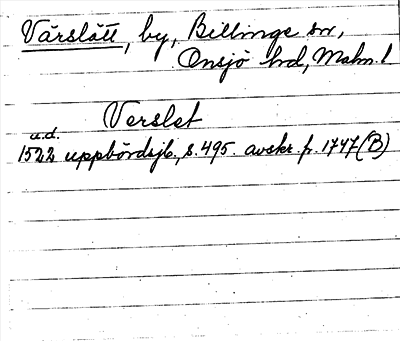 Värslätt, by, Billinge sn,
Onsjö hd, Malm. l.
Verslet
u.d.
1522 uppbördsjb., s. 495. avskr. fr. 1747 (B)